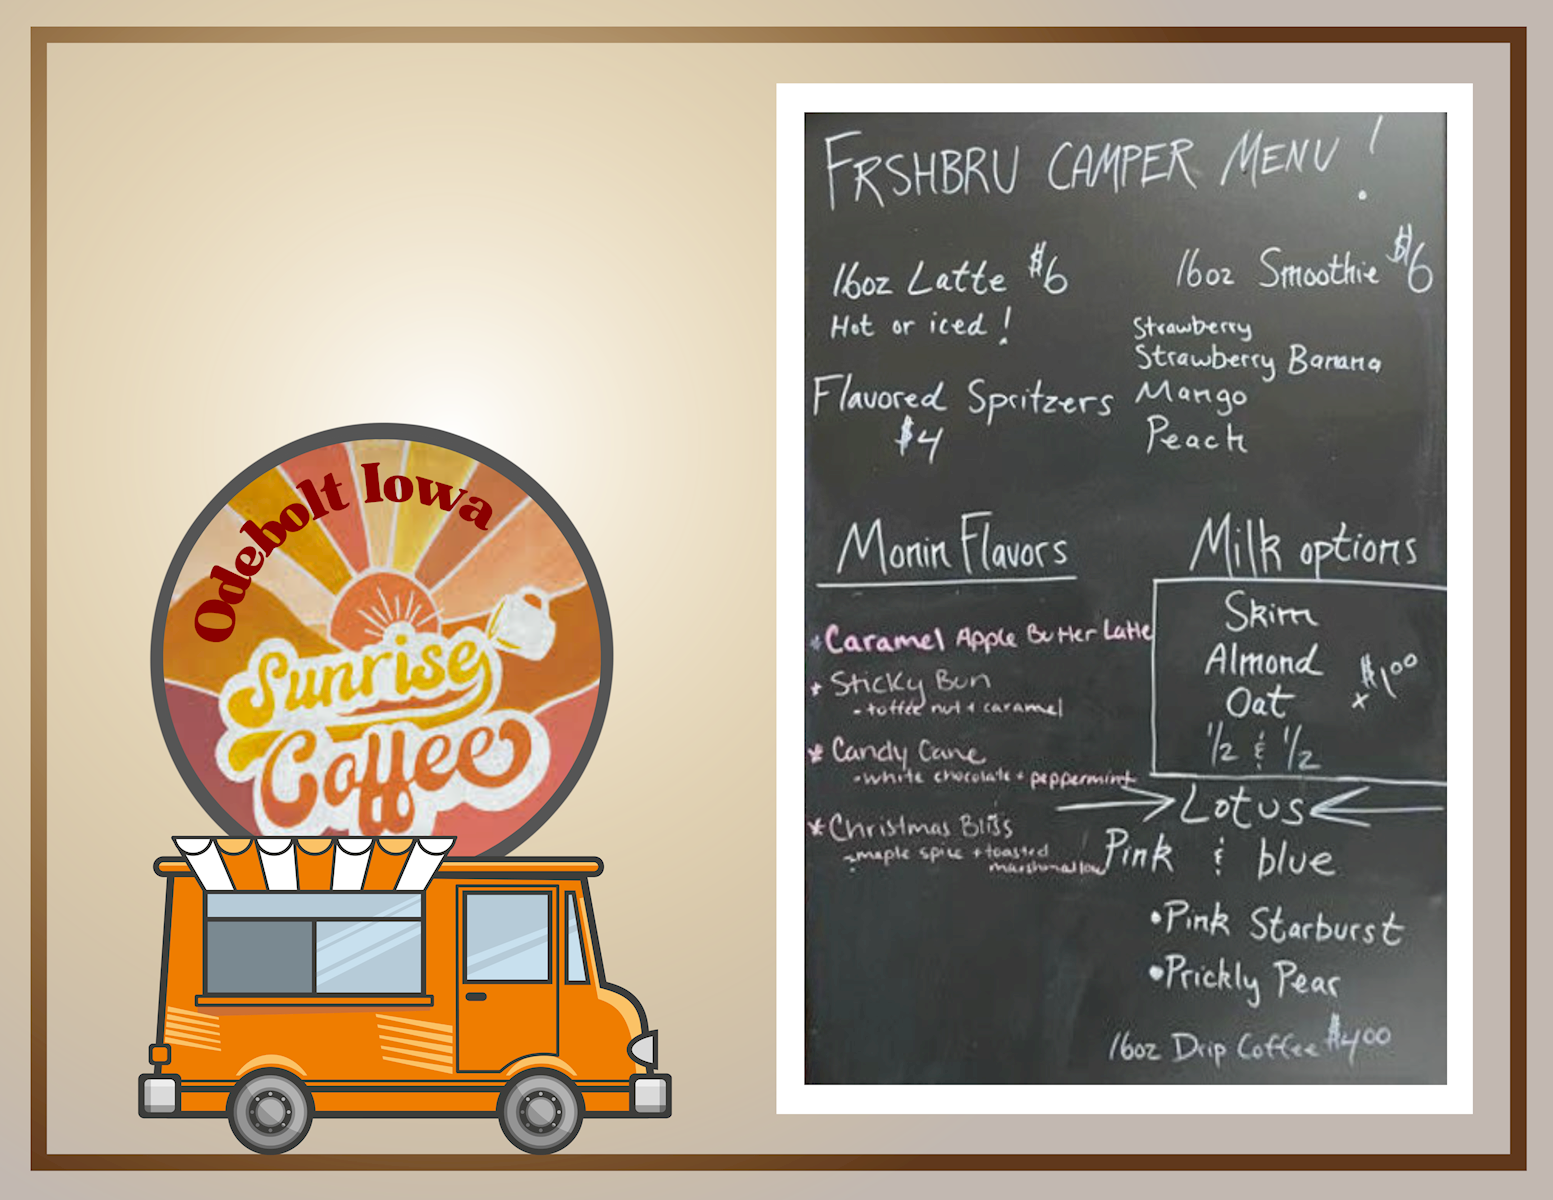 Odebolt Iowa
Sunrise
Coffee
FRSHBRU CAMPER MENU!
16oz Latte $6
Hot or iced!
Flavored Spritzers
$4
16oz Smoothie $6
Strawberry
Strawberry Banana
Mango
Peach
Monin Flavors
* Caramel Apple Butter Latte
* Sticky Bun
- toffee nut + caramel
* Candy Cane
- white chocolate + peppermint
* Christmas Bliss
- maple spice + toasted
marshmallow
Milk options
Skim
Almond
Oat
x $1.00
1/2 & 1/2
Lotus
Pink & blue
• Pink Starburst
• Prickly Pear
16oz Drip Coffee $4.00